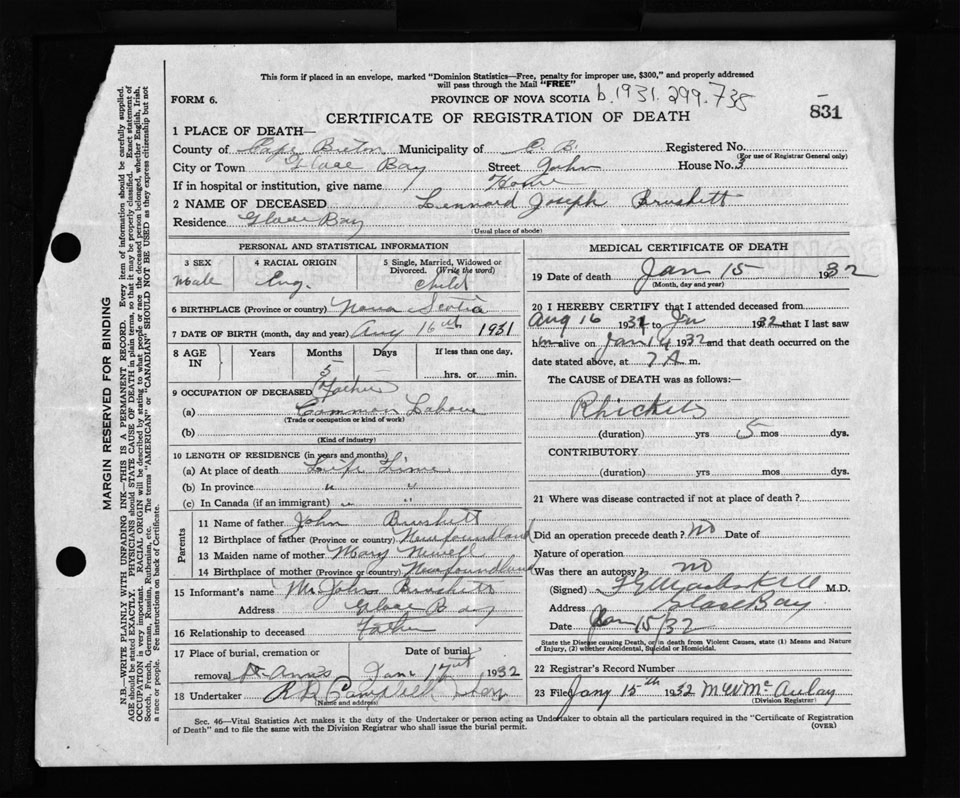 This form if placed in an envelope, marked "Dominion Statistics—Free, penalty for improper use, $300," and properly addressed
will pass through the Mail "FREE"
FORM 6.
PROVINCE OF NOVA SCOTIA b.1931.299.738
831
CERTIFICATE OF REGISTRATION OF DEATH
1 PLACE OF DEATH—
County of Cape Breton Municipality of C B. Registered No.
(For use of Registrar General only)
City or Town Glace Bay Street John House No. 3
If in hospital or institution, give name Home
2 NAME OF DECEASED Lennard Joseph Brushett
Residence Glace Bay
(Usual place of abode)
PERSONAL AND STATISTICAL INFORMATION
3 SEX Male
4 RACIAL ORIGIN Eng.
5 Single, Married, Widowed or
Divorced. (Write the word)
Child
6 BIRTHPLACE (Province or country) Nova Scotia
7 DATE OF BIRTH (month, day and year) Aug 16th 1931
8 AGE IN Years Months Days If less than one day,
5
hrs. or min.
9 OCCUPATION OF DECEASED Father
(a) Common Labour
(Trade or occupation or kind of work)
(b)
(Kind of industry)
10 LENGTH OF RESIDENCE (in years and months)
(a) At place of death Life Time
(b) In province " "
(c) In Canada (if an immigrant) " "
Parents
11 Name of father John Brushett
12 Birthplace of father (Province or country) Newfoundland
13 Maiden name of mother Mary Newell
14 Birthplace of mother (Province or country) Newfoundland
15 Informant's name Mr. John Brushett
Address Glace Bay
16 Relationship to deceased Father
17 Place of burial, cremation or
removal St Anns
Date of burial
Jan 17 1932
18 Undertaker Campbell
(Name and address)
MEDICAL CERTIFICATE OF DEATH
19 Date of death Jan 15 1932
(Month, day and year)
20 I HEREBY CERTIFY that I attended deceased from
Aug 16 1931 to Jan 1932 that I last saw
him alive on Jan 14 1932 and that death occurred on the
date stated above, at 7 A m.
The CAUSE of DEATH was as follows:—
Rhickets
(duration) yrs 5 mos dys.
CONTRIBUTORY
(duration) yrs. mos dys.
21 Where was disease contracted if not at place of death?
Did an operation precede death? No Date of
Nature of operation
Was there an autopsy? no
(Signed) M.D.
Address Glace Bay
Date Jan 15/32
State the Disease causing Death, or in death from Violent Causes, state (1) Means and Nature
of Injury, (2) whether Accidental, Suicidal or Homicidal.
22 Registrar's Record Number
23 Filed Jany 15th 1932 McAulay
(Division Registrar)
Sec. 46—Vital Statistics Act makes it the duty of the Undertaker or person acting as Undertaker to obtain all the particulars required in the "Certificate of Registration
of Death" and to file the same with the Division Registrar who shall issue the burial permit.
(OVER)
MARGIN RESERVED FOR BINDING
N.B.—WRITE PLAINLY WITH UNFADING INK—THIS IS A PERMANENT RECORD. Every item of information should be carefully supplied.
AGE should be stated EXACTLY. PHYSICIANS should STATE CAUSE OF DEATH in plain terms, so that it may be properly classified. Exact statement of
OCCUPATION is very important. RACIAL ORIGIN will be described by stating to what people or race the deceased person belonged, whether English, Irish,
Scotch, French, German, Russian, Ruthenian, etc. The terms "AMERICAN" or "CANADIAN" SHOULD NOT BE USED as they express citizenship but not
a race or people. See instructions on back of Certificate.